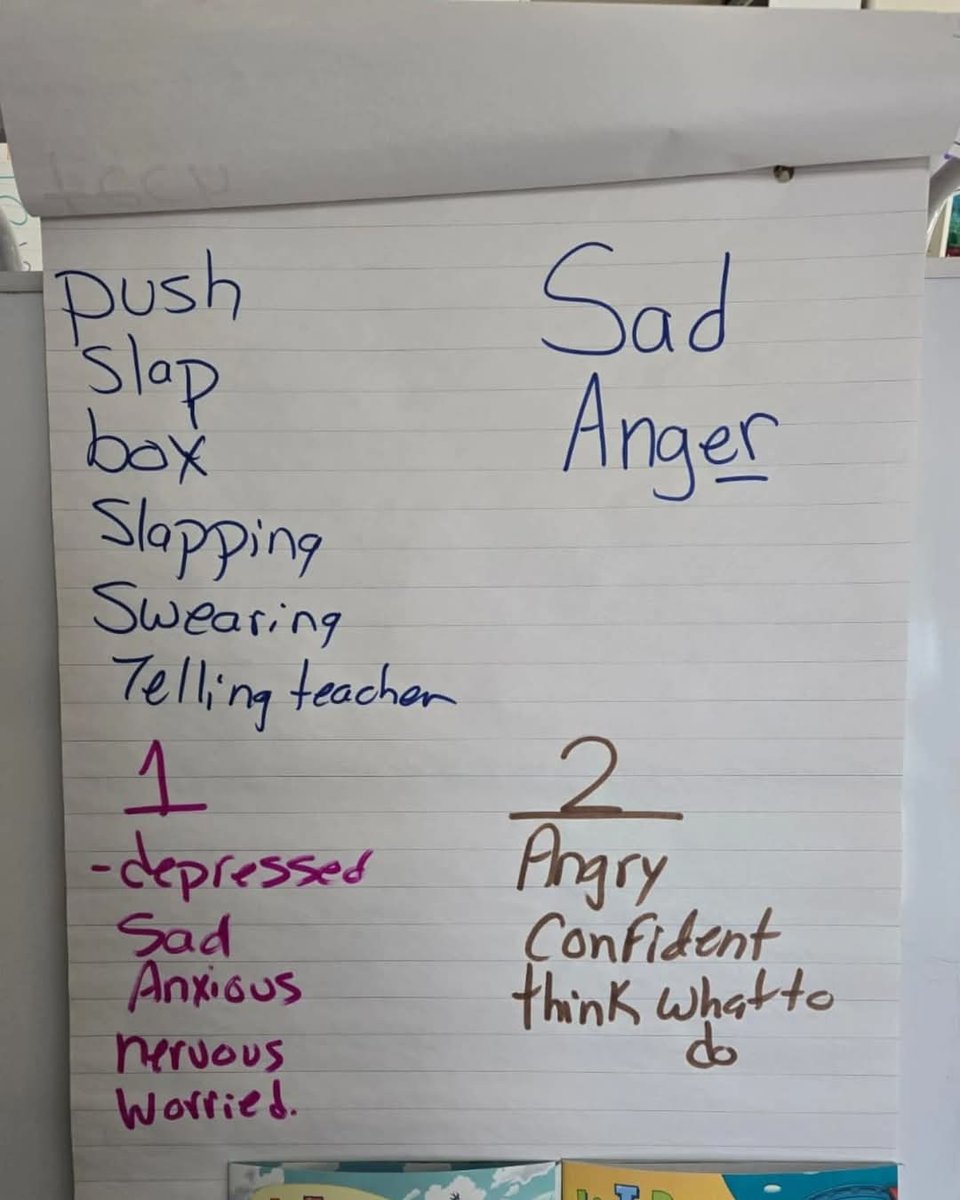 push
Slap
box
Slapping
Swearing
Telling teacher
Sad
Anger
1
-depressed
Sad
Anxious
nervous
Worried.
2
Angry
Confident
think what to
do